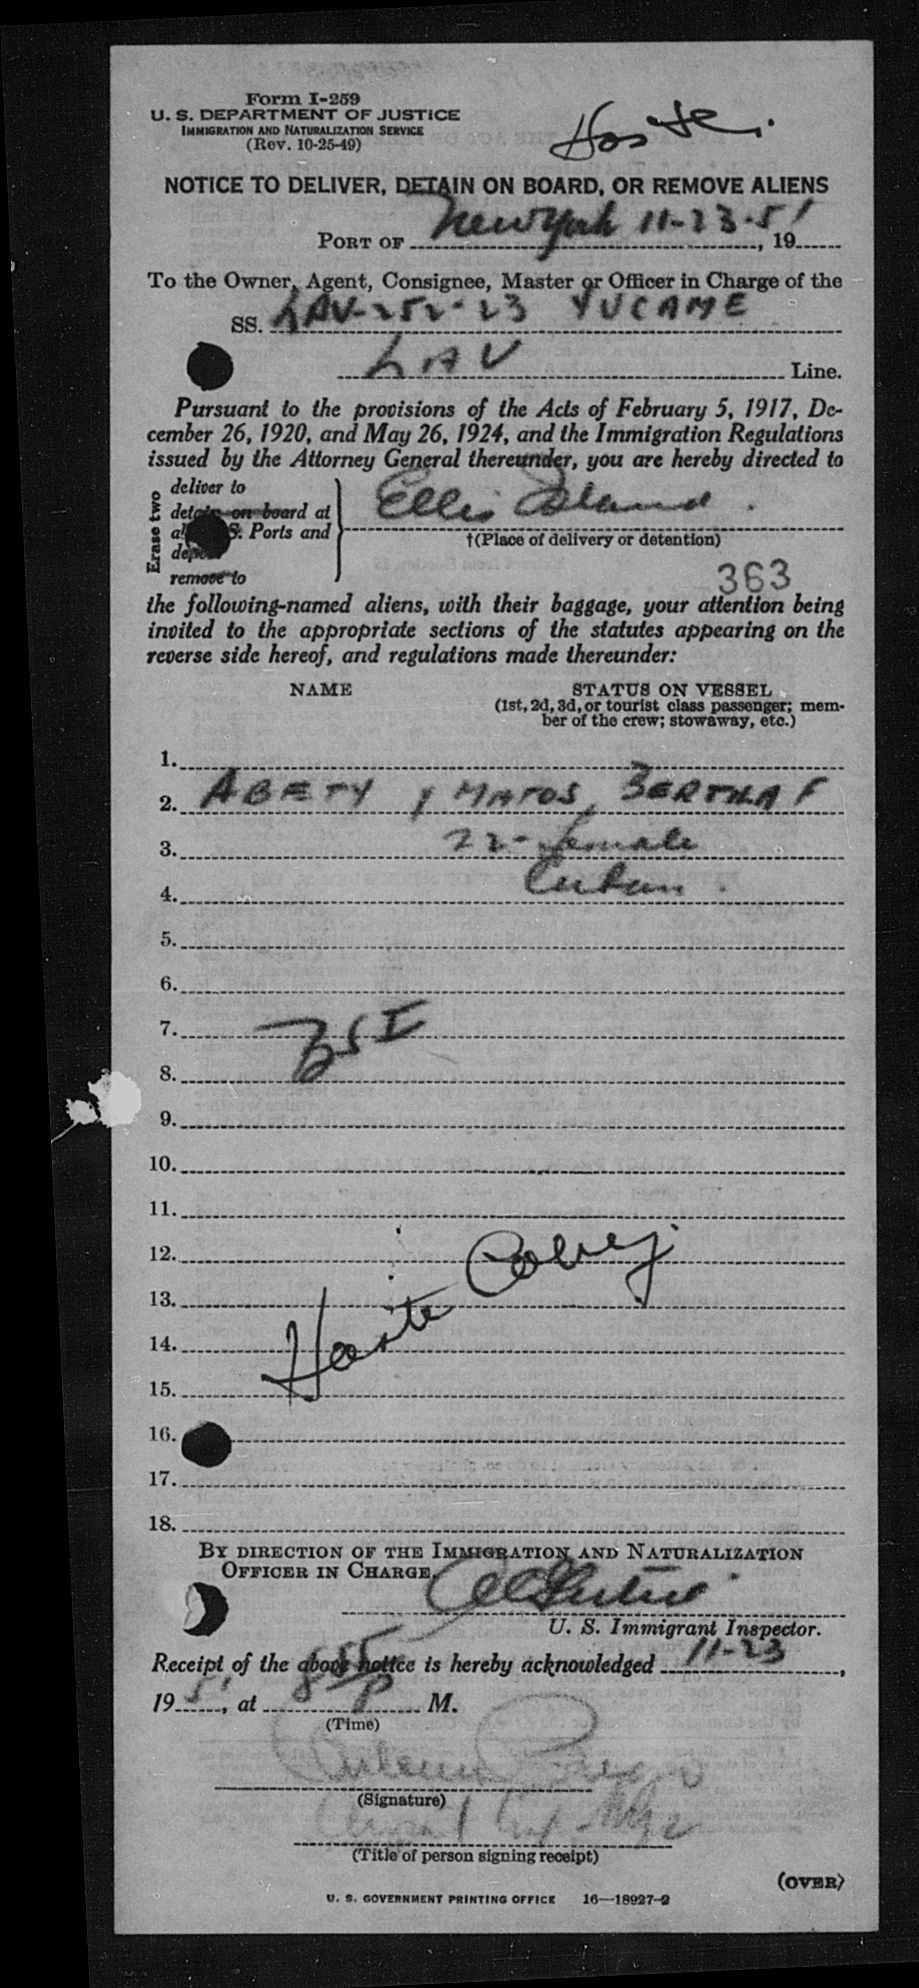 Form I-259
U. S. DEPARTMENT OF JUSTICE
IMMIGRATION AND NATURALIZATION SERVICE
(Rev. 10-25-49)
NOTICE TO DELIVER, DETAIN ON BOARD, OR REMOVE ALIENS
PORT OF New York 11-23-51, 19
To the Owner, Agent, Consignee, Master or Officer in Charge of the
SS. LAV-252-23 YUCAME
LAV Line.
Pursuant to the provisions of the Acts of February 5, 1917, De-
cember 26, 1920, and May 26, 1924, and the Immigration Regulations
issued by the Attorney General thereunder, you are hereby directed to
Erase two
deliver to
detain on board at
Ports and
remove to
Ellis Island
†(Place of delivery or detention)
363
the following-named aliens, with their baggage, your attention being
invited to the appropriate sections of the statutes appearing on the
reverse side hereof, and regulations made thereunder:
NAME STATUS ON VESSEL
(1st, 2d, 3d, or tourist class passenger; mem-
ber of the crew; stowaway, etc.)
1.
2. ABETY y MATOS, BERTHA F
3. 22- female
4. Cuban.
5.
6.
7. BSI
8.
9.
10.
11.
12.
13.
14.
15.
16.
17.
18.
BY DIRECTION OF THE IMMIGRATION AND NATURALIZATION
OFFICER IN CHARGE,
U. S. Immigrant Inspector.
Receipt of the above notice is hereby acknowledged 11-23,
1951, at 855 P M.
(Time)
(Signature)
(Title of person signing receipt)
(OVER)
U. S. GOVERNMENT PRINTING OFFICE 16—18927-2